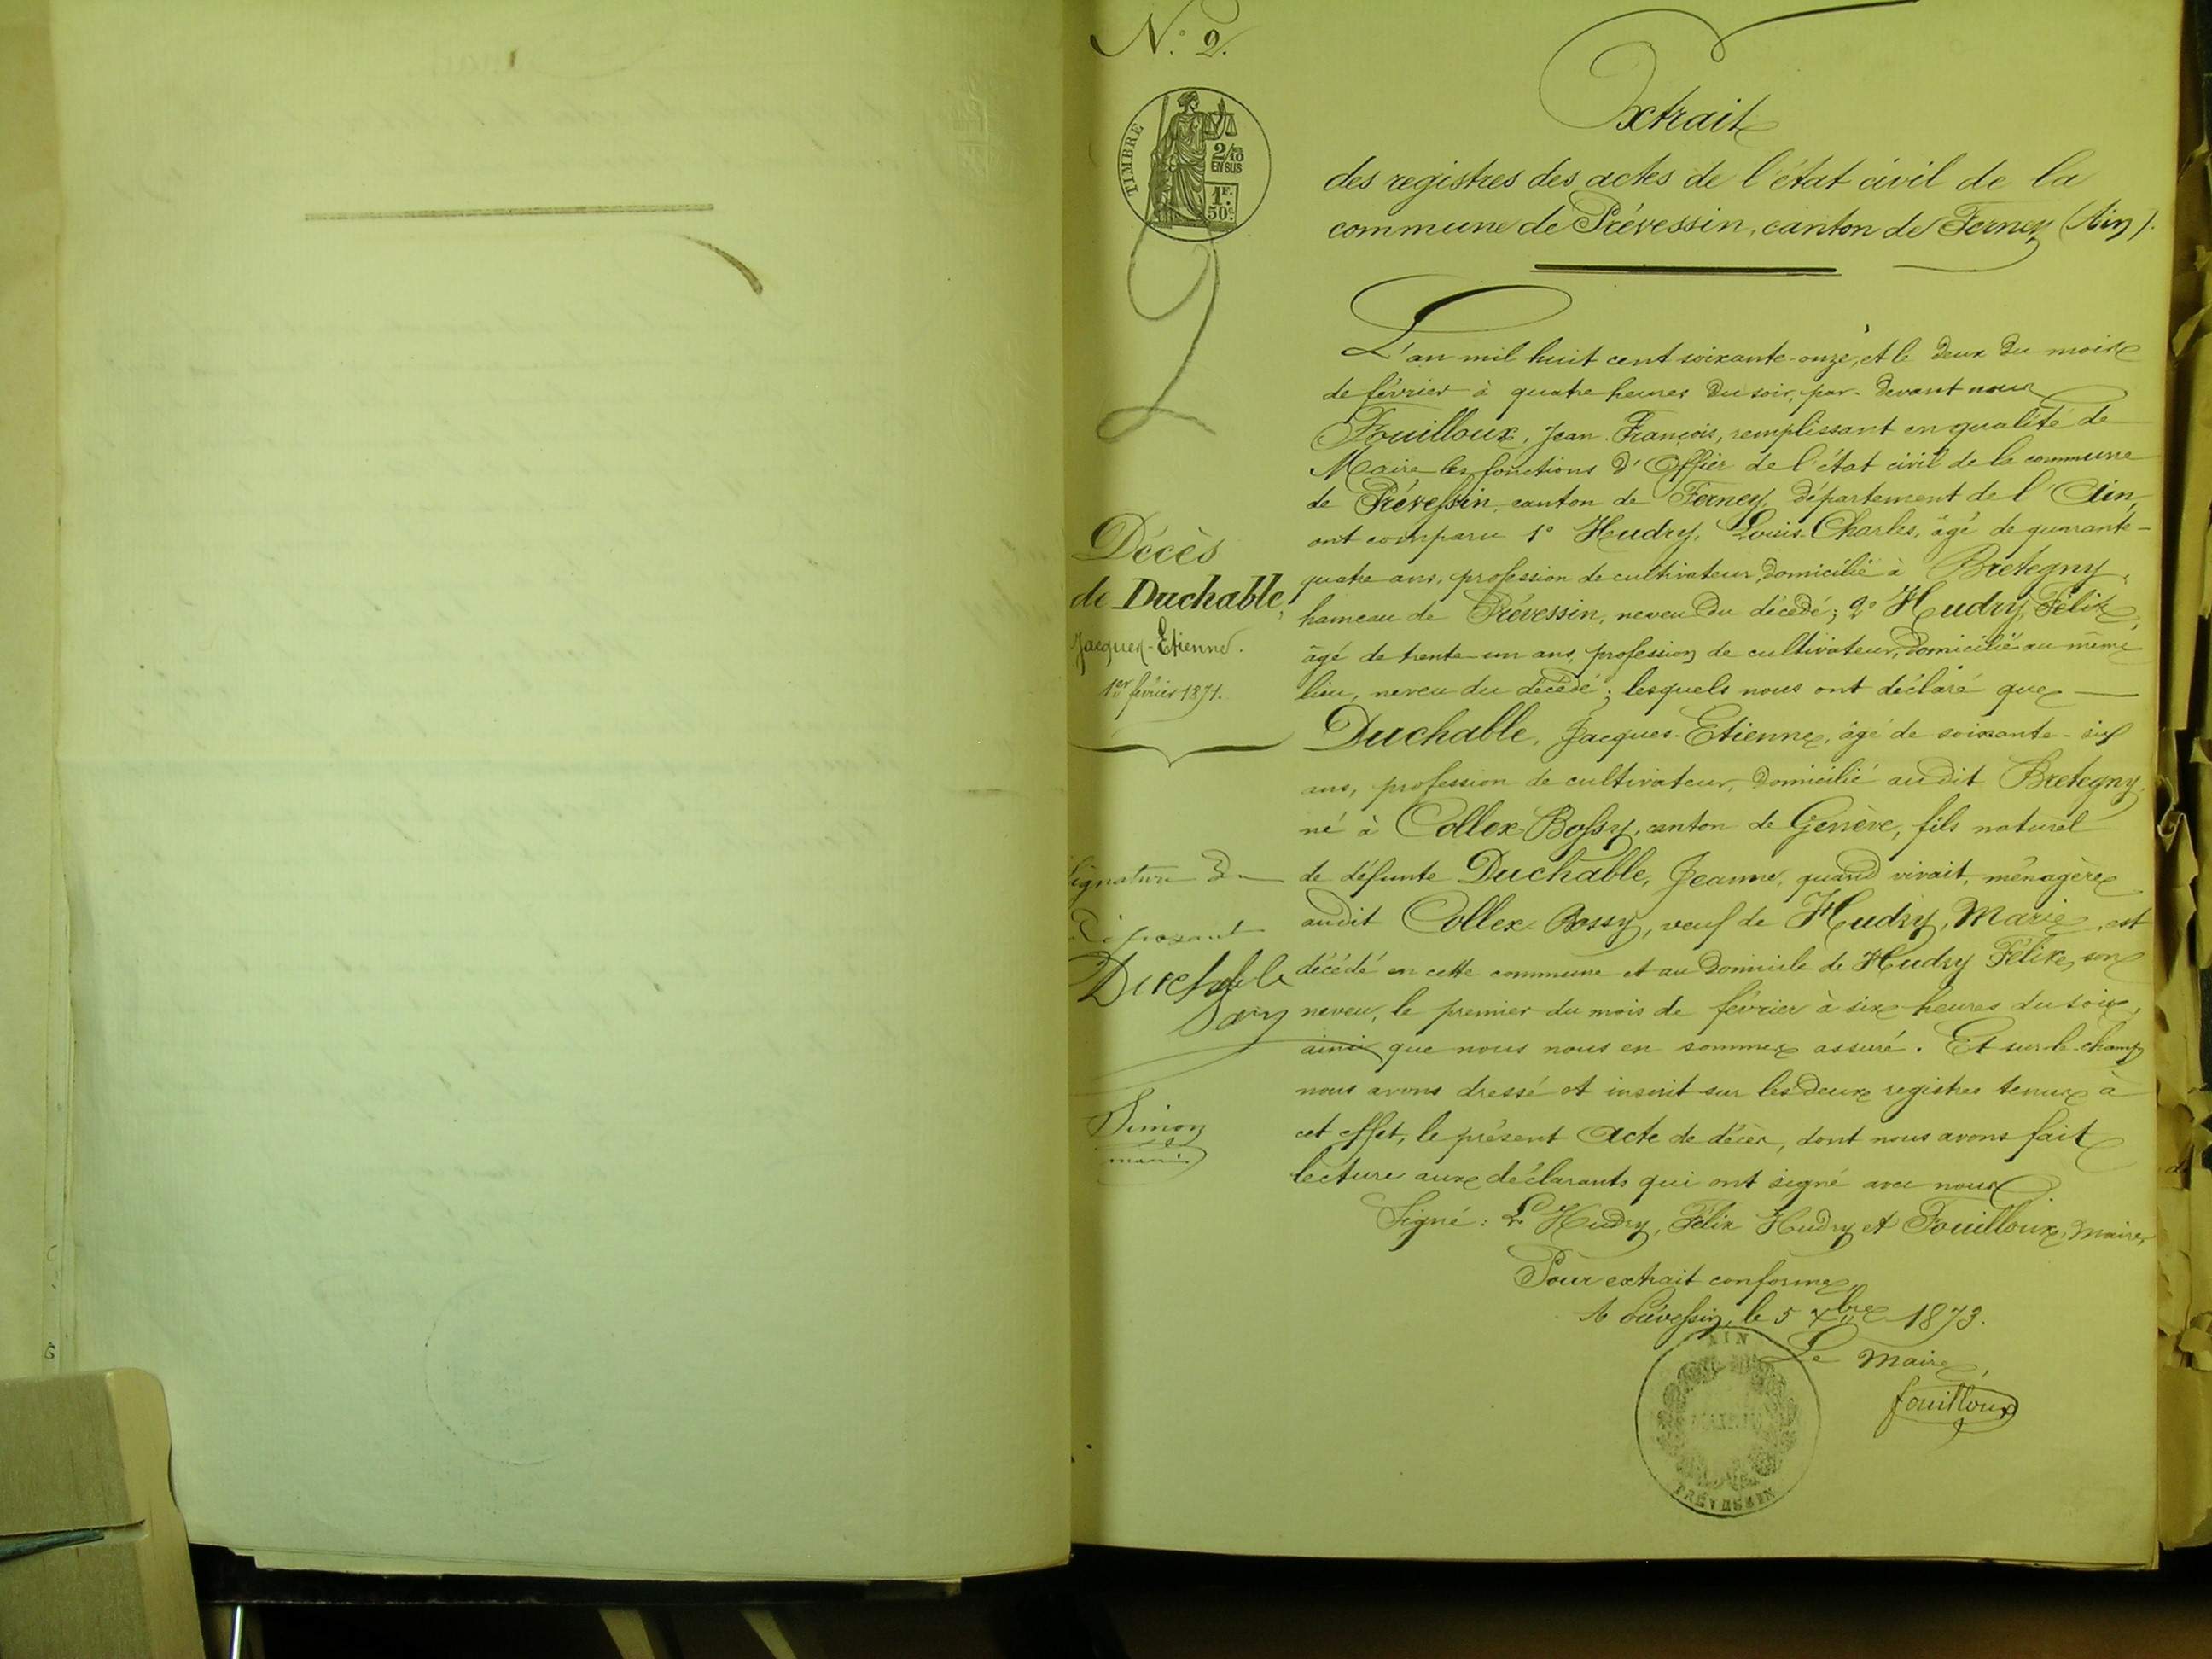 N.° 2.
TIMBRE
2/10
EN SUS
1F.
50c.
2
Extrait
des registres des actes de l'état civil de la
commune de Prévessin, canton de Ferney (Ain).
L'an mil huit cent soixante-onze, et le deux du mois
de février à quatre heures du soir, par-devant nous
Fouilloux, Jean-François, remplissant en qualité de
Maire les fonctions d'Offier de l'état civil de la commune
de Prévessin, canton de Ferney, département de l'Ain,
ont comparu 1° Hudry, Louis-Charles, âgé de quarante-
quatre ans, profession de cultivateur, domicilié à Bretegny,
hameau de Prévessin, neveu du décédé; 2° Hudry, Félix,
âgé de trente-un ans, profession de cultivateur, domicilié au même
lieu, neveu du décédé; lesquels nous ont déclaré que
Duchable, Jacques-Etienne, âgé de soixante-six
ans, profession de cultivateur, domicilié audit Bretegny,
né à Collex-Bossy, canton de Genève, fils naturel
de défunte Duchable, Jeanne, quand vivait, ménagère
audit Collex-Bossy, veuf de Hudry, Marie, est
décédé en cette commune et au domicile de Hudry Félix, son
neveu, le premier du mois de février à six heures du soir,
ainsi que nous nous en sommes assuré. Et sur-le-champ
nous avons dressé et inscrit sur les deux registres tenus à
cet effet, le présent acte de décès, dont nous avons fait
lecture aux déclarants qui ont signé avec nous.
Signé: L. Hudry, Félix Hudry et Fouilloux, maire,
Pour extrait conforme,
A Prévessin, le 5 xbre 1873.
Le Maire,
fouilloux
AIN
MAIRIE
PRÉVESSIN
Décès
de Duchable,
Jacques-Etienne.
1er février 1871.
Signature du
Déposant
Duchable
Simon
maire